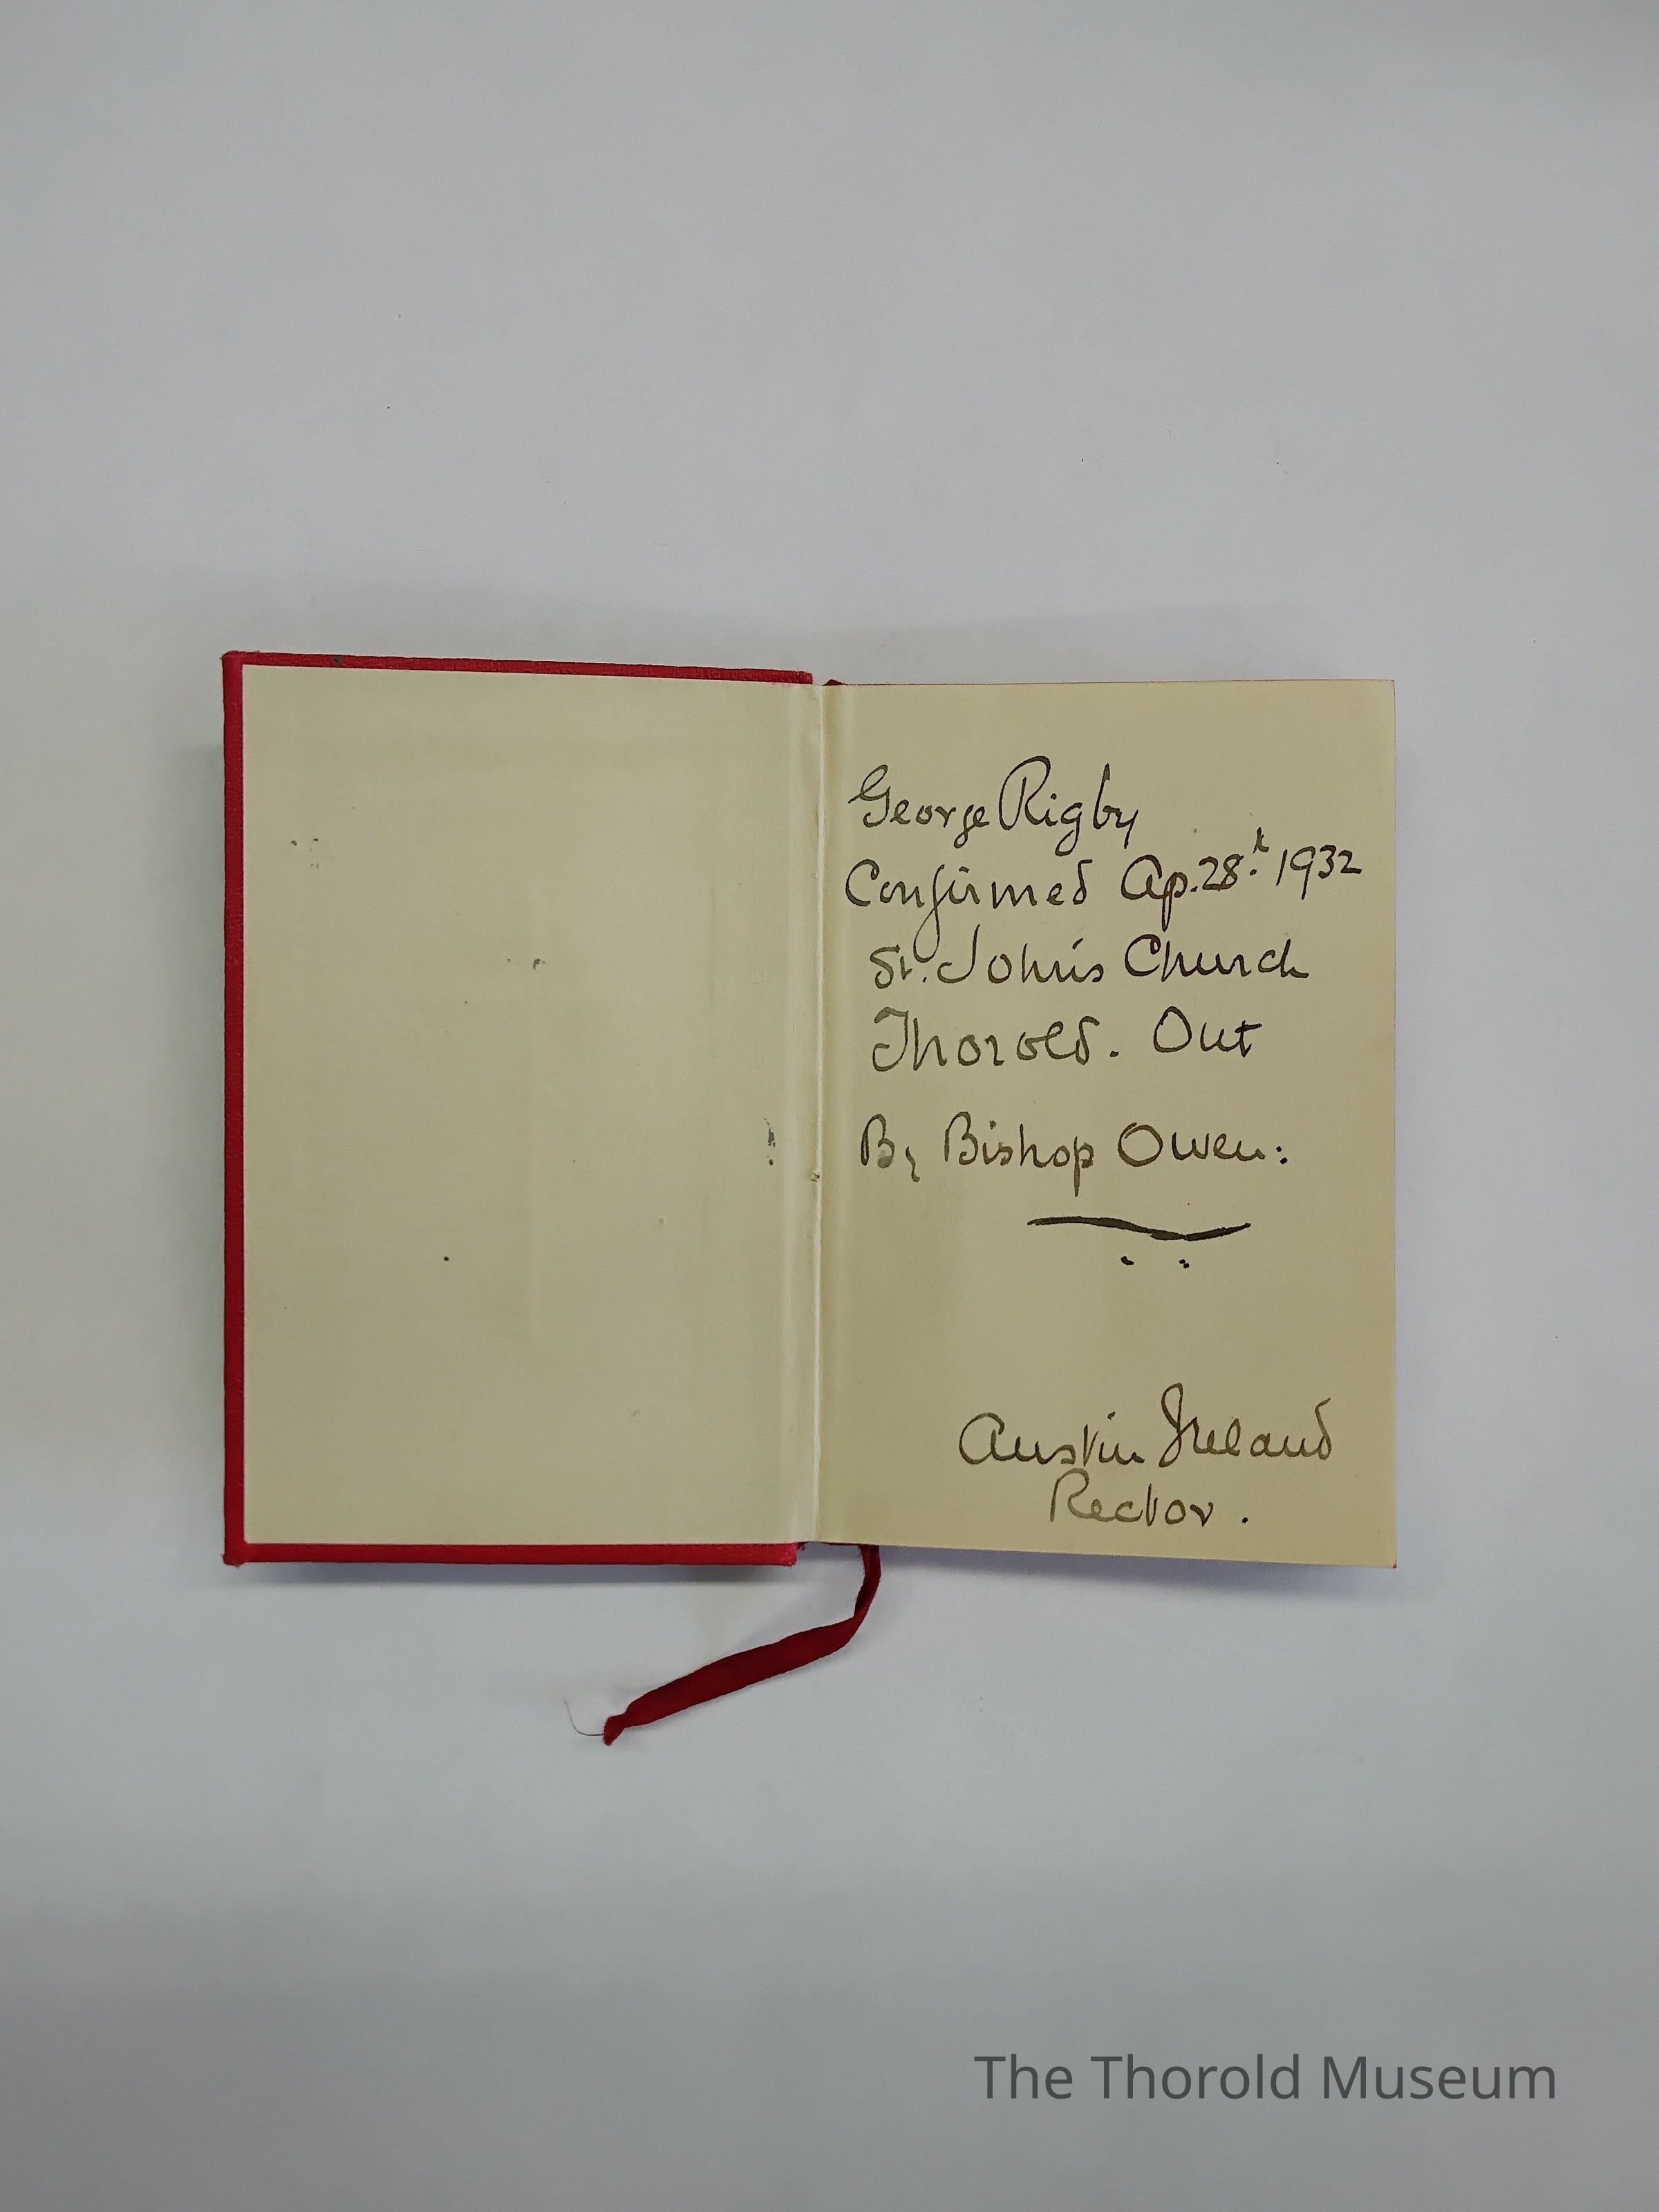 George Rigby
Confirmed Ap. 28.th 1932
St. John's Church
Thorold. Ont
By Bishop Owen:
Austin Ireland
Rector.
The Thorold Museum